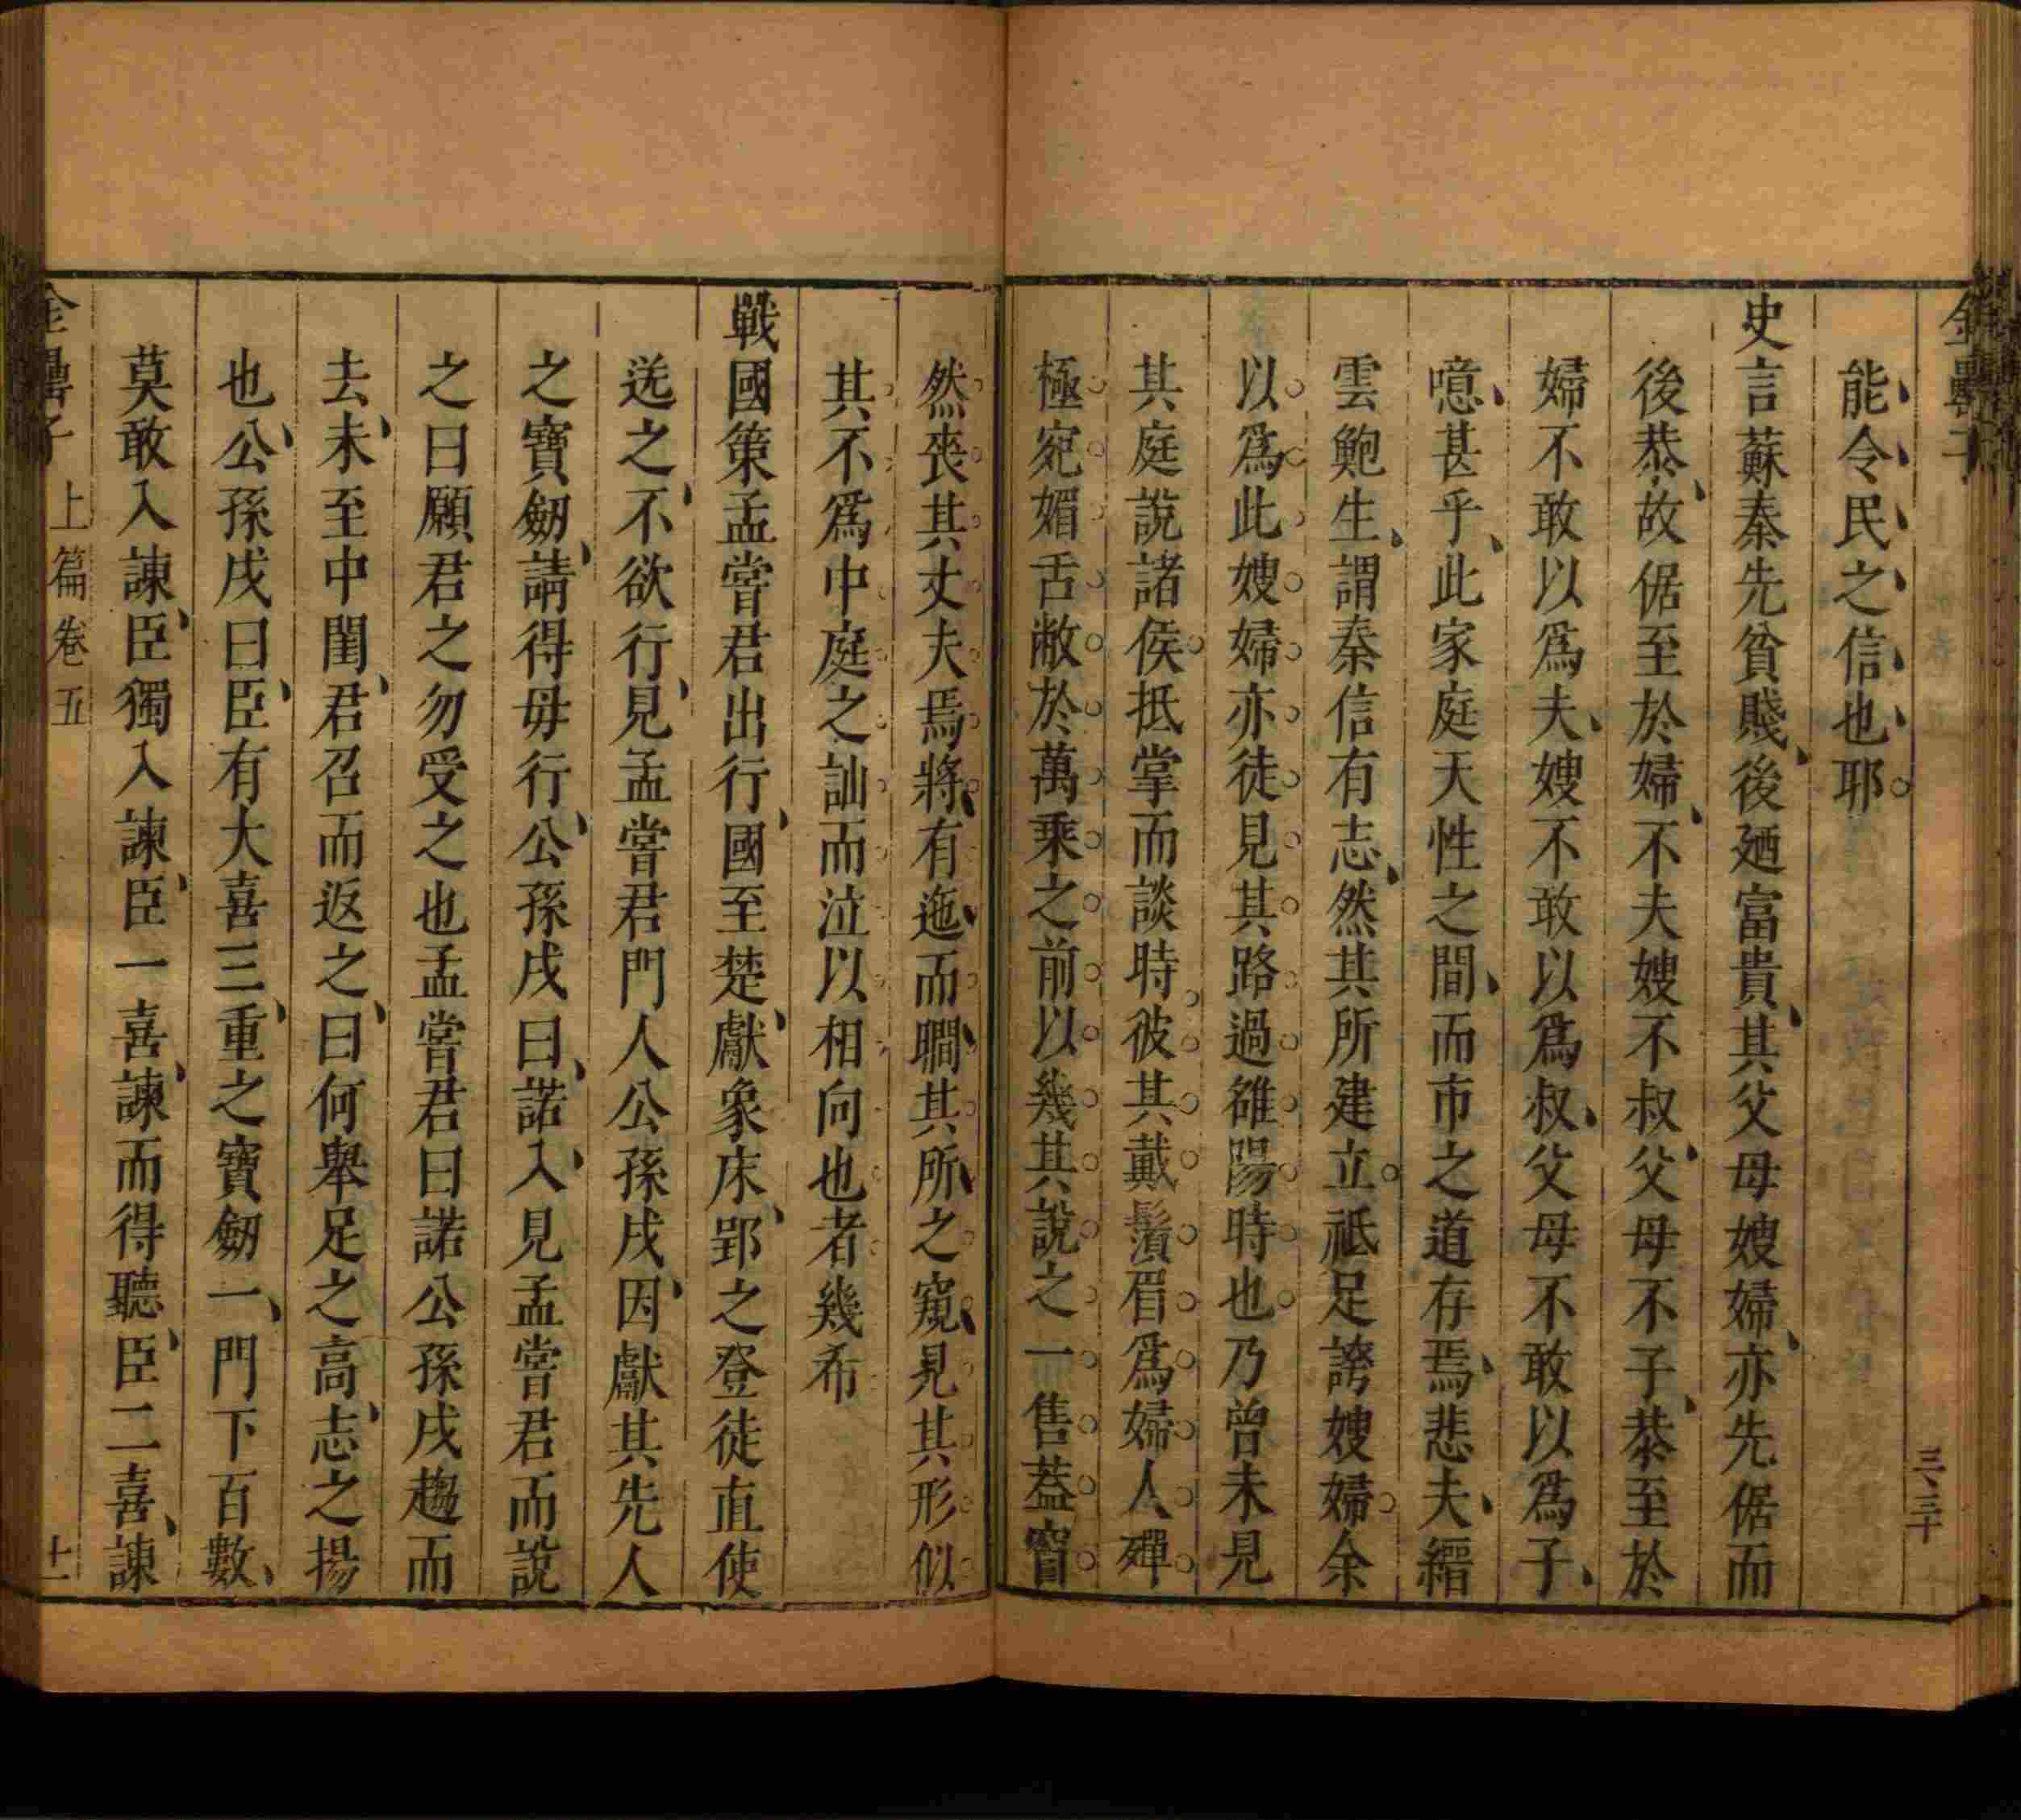 能令民之信也耶
史言蘇秦先貧賤後廼富貴其父母嫂婦亦先倨而
後恭故倨至於婦不夫嫂不叔父母不子恭至於
婦不敢以爲夫嫂不敢以爲叔父母不敢以爲子
噫甚乎此家庭天性之間而市之道存焉悲夫縉
雲鮑生謂秦信有志然其所建立祗足誇嫂婦余
以爲此嫂婦亦徒見其路過雒陽時也乃曾未見
其庭說諸侯抵掌而談時彼其戴鬚眉爲婦人殫
極宛媚舌敝於萬乘之前以幾其說之一售葢窅
然丧其丈夫焉將有迤而瞷其所之窺見其形似
其不爲中庭之訕而泣以相向也者幾希
戰國策孟嘗君出行國至楚獻象床郢之登徒直使
送之不欲行見孟嘗君門人公孫戌因獻其先人
之寶劒請得毋行公孫戌曰諾入見孟嘗君而說
之曰願君之勿受之也孟嘗君曰諾公孫戌趨而
去未至中閨君召而返之曰何舉足之高志之揚
也公孫戌曰臣有大喜三重之寶劒一門下百數
莫敢入諫臣獨入諫臣一喜諫而得聽臣二喜諫
上篇卷五
十一